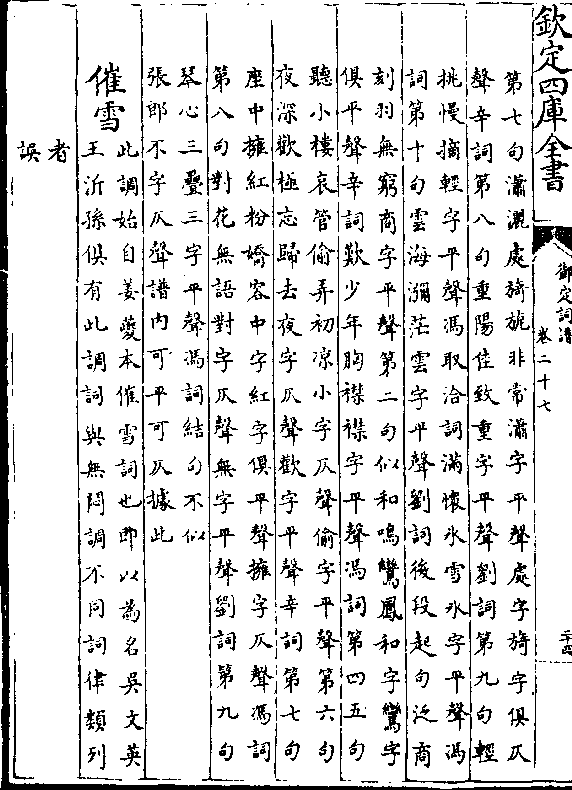 欽定四庫全書
御定詞譜
卷二十七
二十四
第七句瀟灑處旖旎非常瀟字平聲處字旖字俱仄
聲辛詞第八句重陽佳致重字平聲劉詞第九句輕
挑慢摘輕字平聲馮取洽詞滿懷氷雪氷字平聲馮
詞第十句雲海瀰茫雲字平聲劉詞後段起句泛商
刻羽無窮商字平聲第二句似和鳴鸞鳳和字鸞字
俱平聲辛詞歎少年胸襟襟字平聲馮詞第四五句
聽小樓哀管偷弄初凉小字仄聲偷字平聲第六句
夜深歡極忘歸去夜字仄聲歡字平聲辛詞第七句
座中擁紅粉嬌容中字紅字俱平聲擁字仄聲馮詞
第八句對花無語對字仄聲無字平聲劉詞第九句
琴心三疊三字平聲馮詞結句不似
張郎不字仄聲譜內可平可仄據此
催雪
此調始自姜夔本催雪詞也即以為名吳文英
王沂孫俱有此調詞與無悶調不同詞律類列
者
誤